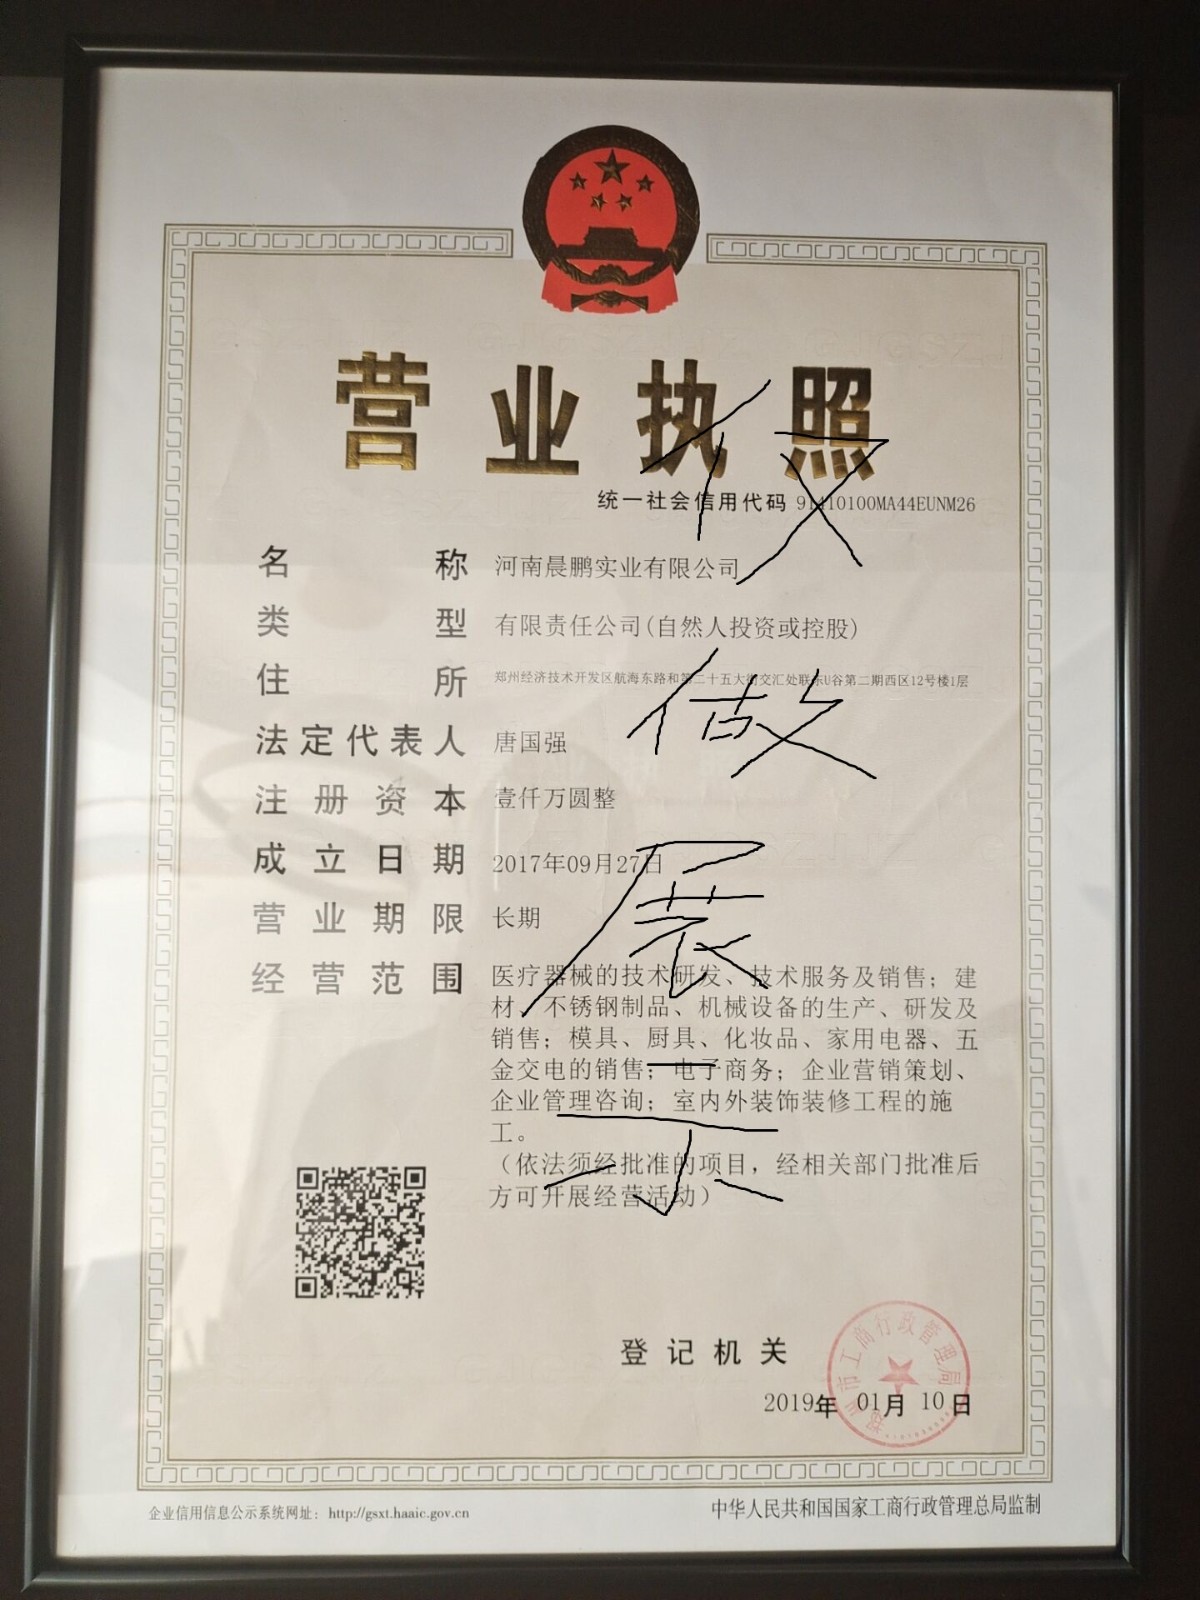 营业执照
统一社会信用代码 91410100MA44EUNM26
名称 河南晨鹏实业有限公司
类型 有限责任公司(自然人投资或控股)
住所 郑州经济技术开发区航海东路和第二十五大街交汇处联东U谷第二期西区12号楼1层
法定代表人 唐国强
注册资本 壹仟万圆整
成立日期 2017年09月27日
营业期限 长期
经营范围 医疗器械的技术研发、技术服务及销售；建
材、不锈钢制品、机械设备的生产、研发及
销售；模具、厨具、化妆品、家用电器、五
金交电的销售；电子商务；企业营销策划、
企业管理咨询；室内外装饰装修工程的施
工。
（依法须经批准的项目，经相关部门批准后
方可开展经营活动）
仅做展示
登记机关
郑州市工商行政管理局
2019年 01月 10日
企业信用信息公示系统网址：http://gsxt.haaic.gov.cn
中华人民共和国国家工商行政管理总局监制